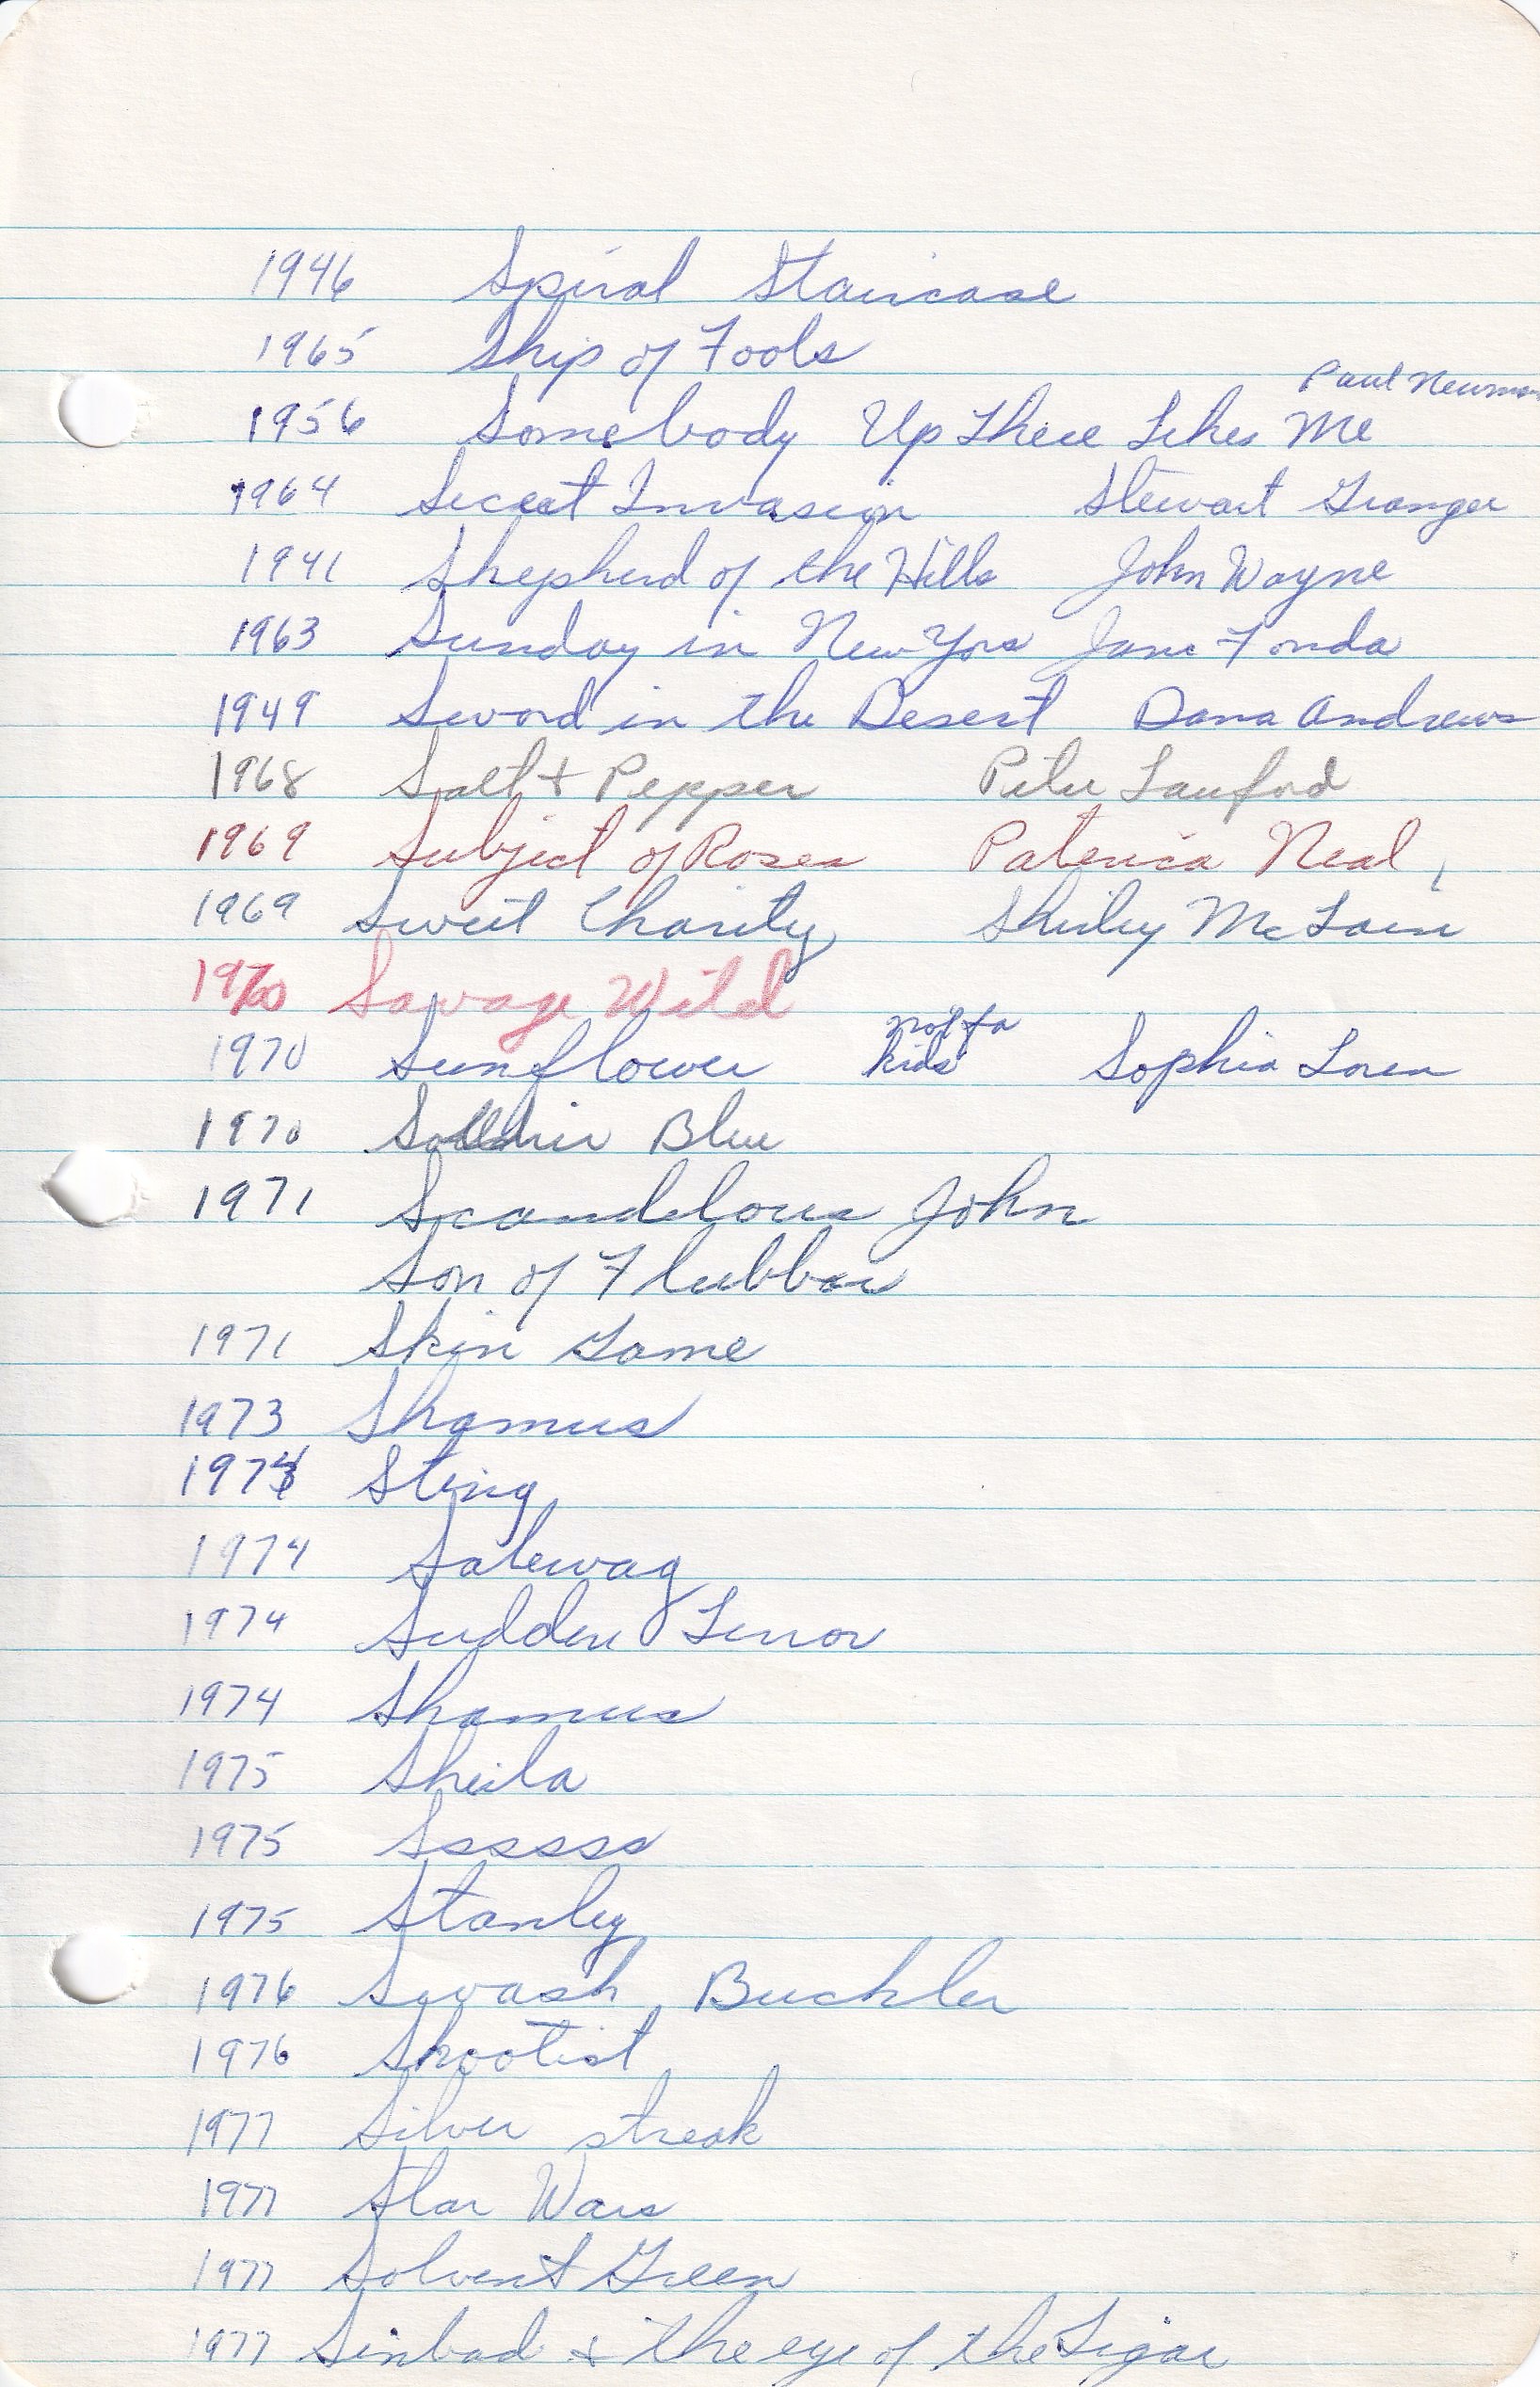 1946 Spiral Staircase
1965 Ship of Fools
Paul Newman
1956 Somebody Up There Likes Me
1964 Secret Invasion Stewart Granger
1941 Shepherd of the Hills John Wayne
1963 Sunday in New York Jane Fonda
1949 Sword in the Desert Dana Andrews
1968 Salt + Pepper Peter Lawford
1969 Subject of Roses Paterica Neal,
1969 Sweet Charity Shirley McLain
1970 Savage Wild
not fo
1970 Sunflower kids Sophia Loren
1970 Soldier Blue
1971 Scandelous John
Son of Flubbar
1971 Skin Game
1973 Shamus
1974 Sting
1974 Salewag
1974 Sudden Terror
1974 Shamus
1975 Sheila
1975 Ssssss
1975 Stanley
1976 Swash Buckler
1976 Shootist
1977 Silver streak
1977 Star Wars
1977 Solvent Green
1977 Sinbad & the eye of the Tigar